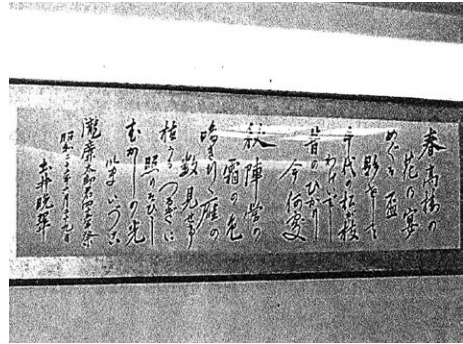 春高樓の
花の宴
めぐる盃
影さして
千代の松が枝
わけいでし
昔のひかり
今何處
秋陣営の
霜の色
鳴き行く雁の
数見せて
植うるつるぎに
照りそひし
むかしの光
今いづこ
瀧廉太郎君
昭和二十
土井晩翠